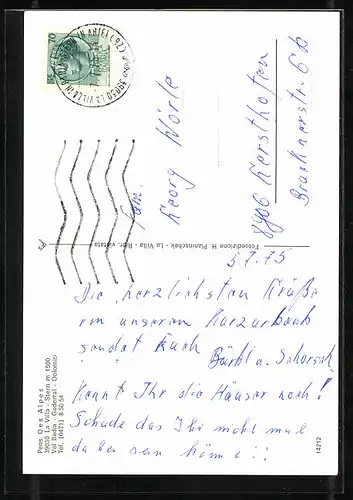 Pens. Des Alpes
39030 La Villa - Stern m 1500
Val Badia - Gadertal - Dolomiti
Tel. (0471) 8 50 54
Fotoedizione H. Planinschek - La Villa - Ripr. vietata
14212
70
39030 LA VILLA IN BADIA
Fam.
Georg Wörle
8906 Gersthofen
Brucknerstr. 6b
5.7.75
Die herzlichsten Grüße
von unserem Kurzurlaub
sendet Euch Bärbl u. Schorsch
Kennt Ihr die Häuser noch!
Schade das Ihr nicht mal
da sein könnt!!!